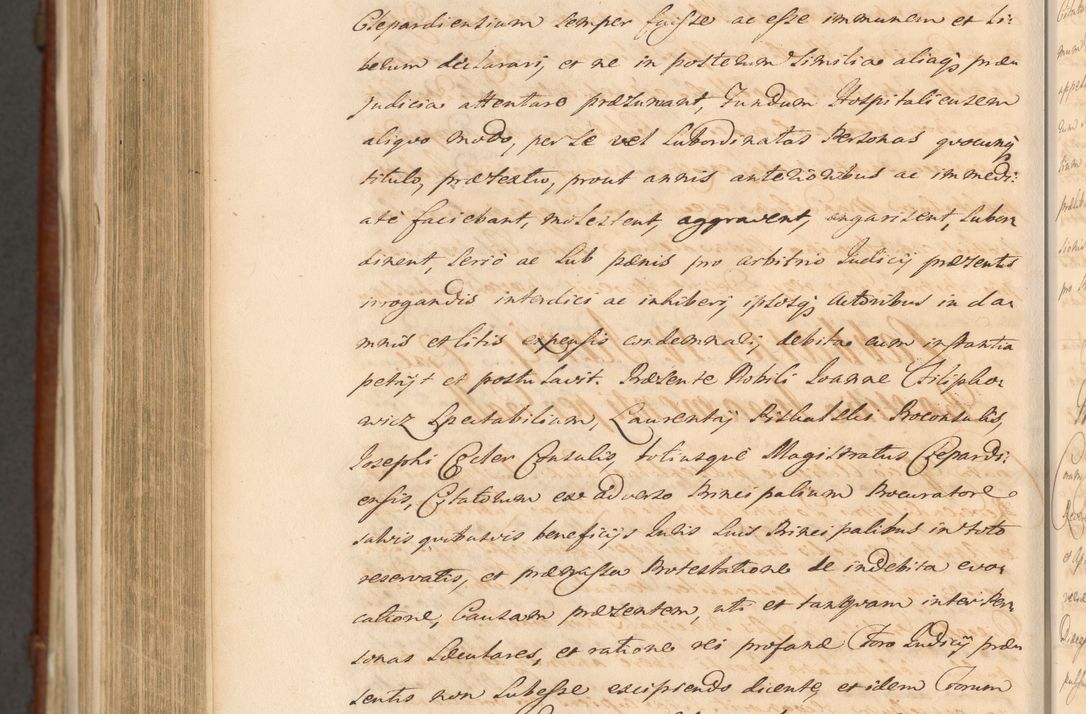 Clepardiensium semper fuisse ac esse immunem et li:
berum declarari, et ne in posterum similia aliaq3 præ
judicia attentare præsumant, Fundum Hospitaliensem
aliquo modo, per se vel subordinatas Personas quocunq3
titulo, prætextu, prout annis anterioribus ac immedi:
atè faciebant, molestent, aggravent, angarisent, subor
dinent, serio ac sub pænis pro arbitrio Judicij præsentis
irrogandis interdici ac inhiberi, ipsosq3 Actoribus in da
mnis et litis expensis condemnari, debita cum instantia
petijt et postulavit. Præsente Nobili Joanne Filipho
wicz Spectabilium, Laurentij Proconsulis,
Josephi Consulis, totiusque Magistratus Clepardi:
ensis, Citatorum ex adverso Principalium Procuratore
salvis quibusvis beneficijs Juris suis Principalibus in toto
reservatis, et præmissa Protestatione de indebita evo
catione, Causam præsentem, uti et tanquam inter Per
sonas Sæculares, et ratione rei profanæ Foro Judicij præ
sentis non subesse excipiendo dicente, et idem Forum